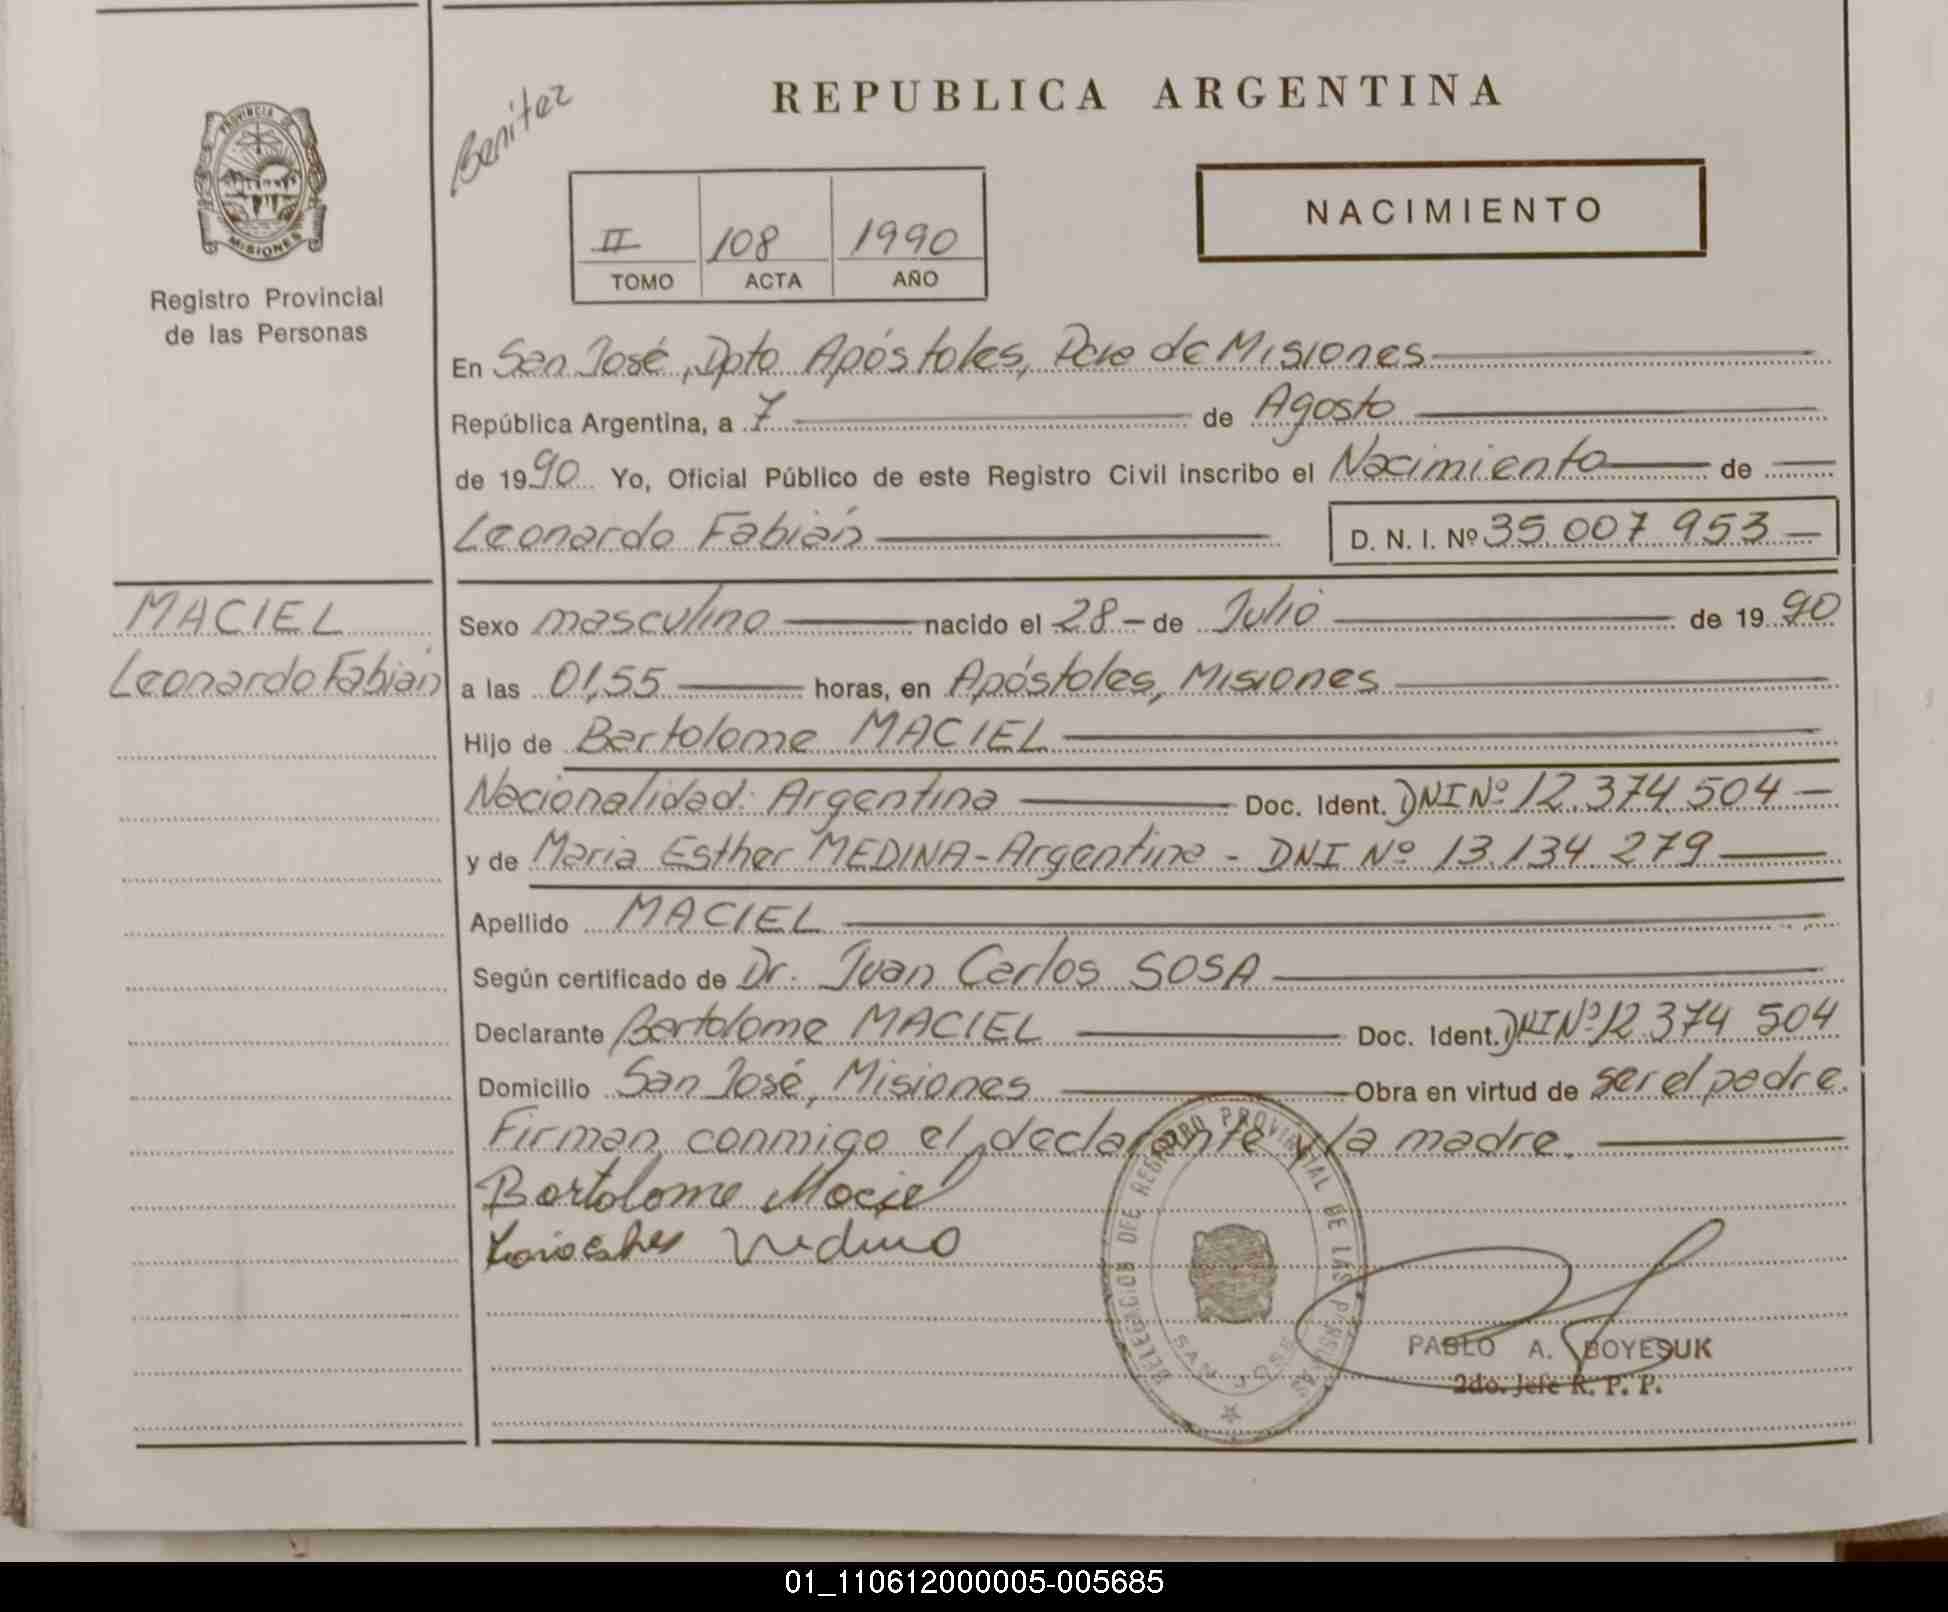 REPUBLICA ARGENTINA
Benitez
PROVINCIA DE
MISIONES
Registro Provincial
de las Personas
II 108 1990
TOMO ACTA AÑO
NACIMIENTO
En San José, Dpto Apóstoles, Pcia de Misiones
República Argentina, a 7 de Agosto
de 1990 Yo, Oficial Público de este Registro Civil inscribo el Nacimiento de
Leonardo Fabián D. N. I. Nº 35.007.953
MACIEL
Leonardo Fabián
Sexo masculino nacido el 28 de Julio de 1990
a las 01,55 horas, en Apóstoles, Misiones
Hijo de Bartolome MACIEL
Nacionalidad: Argentina Doc. Ident. DNI Nº 12.374.504
y de Maria Esther MEDINA - Argentina - DNI Nº 13.134.279
Apellido MACIEL
Según certificado de Dr. Juan Carlos SOSA
Declarante Bartolome MACIEL Doc. Ident. DNI Nº 12.374.504
Domicilio San José, Misiones Obra en virtud de ser el padre.
Firman conmigo el declarante y la madre.
Bartolome Maciel
Medina
DELEGACION DEL REGISTRO PROVINCIAL DE LAS PERSONAS
SAN JOSE
PABLO A. BOYESUK
2do. Jefe R. P. P.
01_110612000005-005685